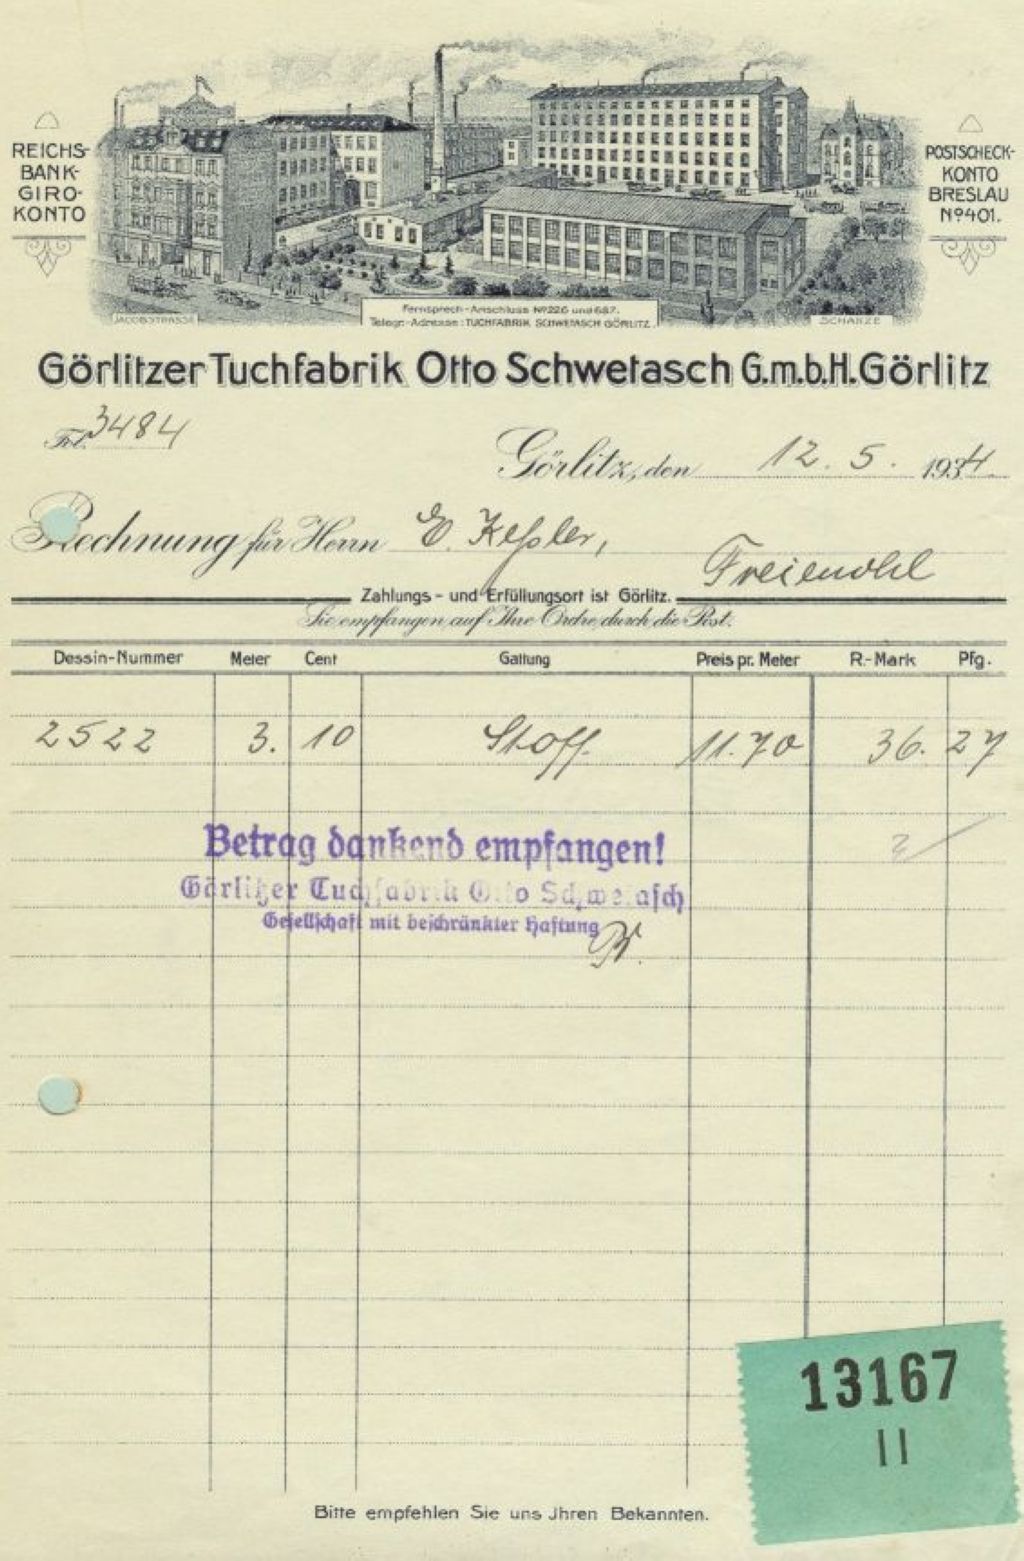 REICHS-
BANK-
GIRO-
KONTO
POSTSCHECK-
KONTO
BRESLAU
Nº401.
JACOBSTRASSE
Fernsprech-Anschluss Nº226 und 687.
Telegr.-Adresse: TUCHFABRIK SCHWETASCH GÖRLITZ.
SCHANZE
Görlitzer Tuchfabrik Otto Schwetasch G.m.b.H. Görlitz
Fol. 3484
Görlitz, den 12. 5. 1934.
Rechnung für Herrn E. Keßler,
Freienohl
Zahlungs- und Erfüllungsort ist Görlitz.
Sie empfangen auf Ihre Ordre durch die Post:
Dessin-Nummer Meter Cent Gattung Preis pr. Meter R.-Mark Pfg.
2522 3. 10 Stoff 11.70 36. 27
Betrag dankend empfangen!
Görlitzer Tuchfabrik Otto Schwetasch
Gesellschaft mit beschränkter Haftung
13167
II
Bitte empfehlen Sie uns Jhren Bekannten.